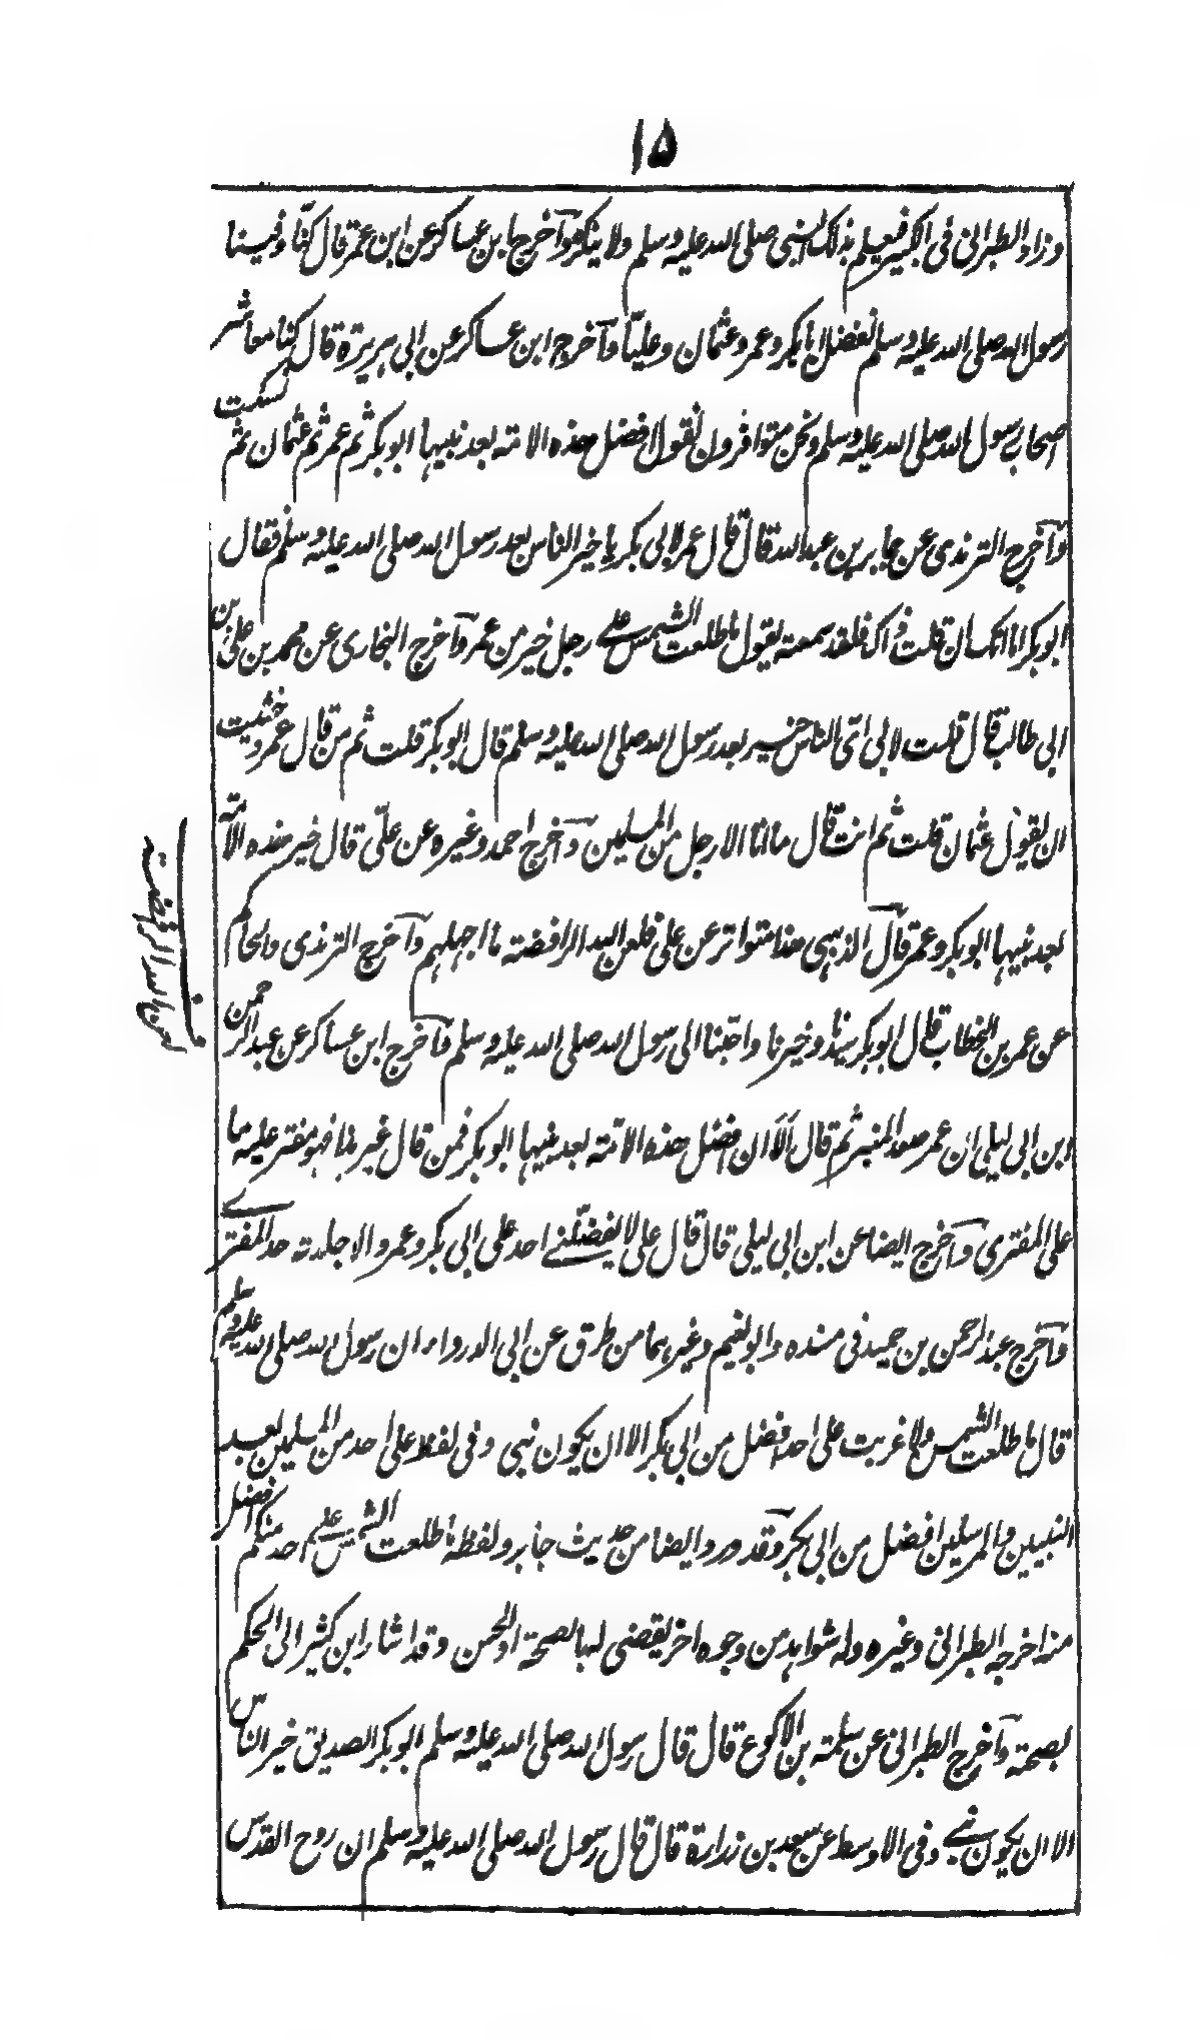 ۱۵
وزاد الطبرانی فی الکبیر فیعلم بذلک النبی صلی الله علیه وسلم ولا ینکره وآخرج ابن عساکر عن ابن عمر قال کنّا وفینا
رسول الله صلی الله علیه وسلم نفضل ابا بکر وعمر وعثمان وعلیّا وآخرج ابن عساکر عن ابی هریرة قال کنا معاشر
اصحاب رسول الله صلی الله علیه وسلم ونحن متوافرون نقول افضل هذه الامة بعد نبیها ابو بکر ثم عمر ثم عثمان ثم نسکت
وآخرج الترمذی عن جابر بن عبد الله قال قال عمر لابی بکر یا خیر الناس بعد رسول الله صلی الله علیه وسلم فقال
ابو بکر اما انک ان قلت ذاک فلقد سمعته یقول ما طلعت الشمس علی رجل خیر من عمر وآخرج البخاری عن محمد بن علی بن
ابی طالب قال قلت لابی ایّ الناس خیر بعد رسول الله صلی الله علیه وسلم قال ابو بکر قلت ثم من قال عمر وخشیت
ان یقول عثمان قلت ثم انت قال ما انا الا رجل من المسلمین وآخرج احمد وغیره عن علیّ قال خیر هذه الامة
بعد نبیها ابو بکر وعمر قال الذهبی هذا متواتر عن علی فلعن الله الرافضة ما اجهلهم وآخرج الترمذی والحاکم
عن عمر بن الخطاب قال ابو بکر سیدنا وخیرنا واحبّنا الی رسول الله صلی الله علیه وسلم وآخرج ابن عساکر عن عبد الرحمن
ابن ابی لیلی ان عمر صعد المنبر ثم قال اَلاَ ان افضل هذه الامة بعد نبیها ابو بکر فمن قال غیر هذا فهو مفتر علیه ما
علی المفتری وآخرج ایضا عن ابن ابی لیلی قال قال علی لا یفضّلنی احد علی ابی بکر وعمر الا جلدته حد المفتری
وآخرج عبد الرحمن بن حمید فی مسنده وابو نعیم وغیرهما من طرق عن ابی الدرداء ان رسول الله صلی الله علیه وسلم
قال ما طلعت الشمس ولا غربت علی احد افضل من ابی بکر الا ان یکون نبی وفی لفظ علی احد من المسلمین بعد
النبیین والمرسلین افضل من ابی بکر وقد ورد ایضا من حدیث جابر ولفظه ما طلعت الشمس علی احد منکم افضل
منه اخرجه الطبرانی وغیره وله شواهد من وجوه اخر یقضی لها بالصحة او الحسن وقد اشار ابن کثیر الی الحکم
بصحته وآخرج الطبرانی عن سلمة بن الاکوع قال قال رسول الله صلی الله علیه وسلم ابو بکر الصدیق خیر الناس
الا ان یکون نبی وفی الاوسط عن سعد بن زرارة قال قال رسول الله صلی الله علیه وسلم ان روح القدس
لعن الله الرافضة